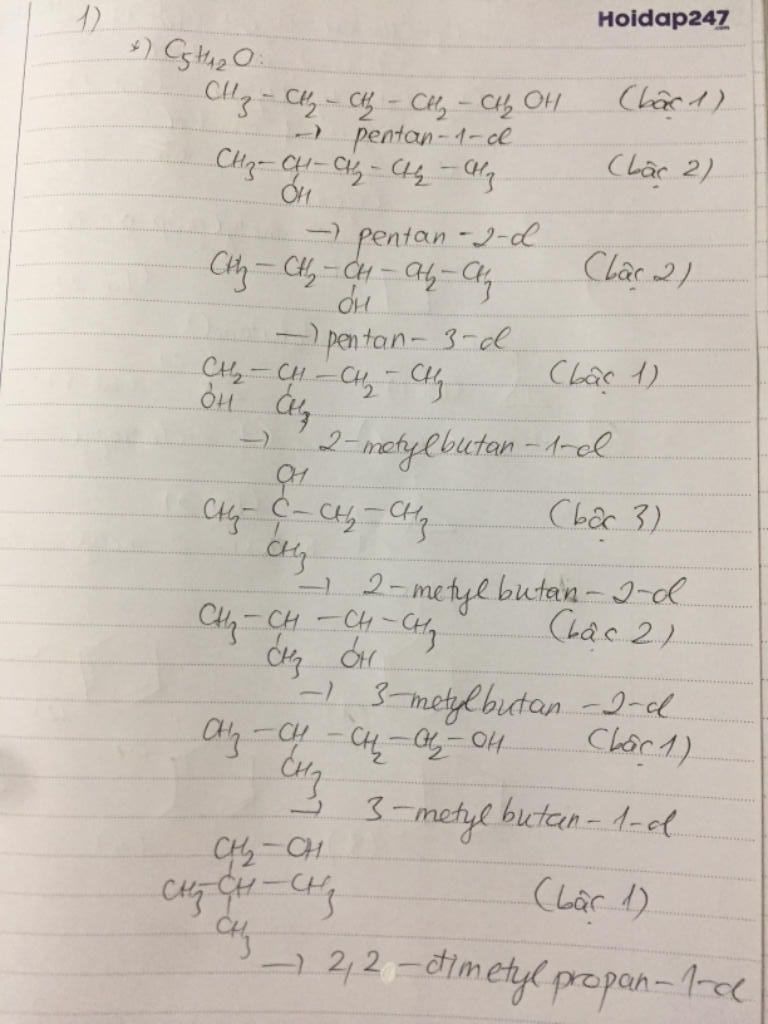 1)
Hoidap247
.com
*) C5H12O:
CH3 - CH2 - CH2 - CH2 - CH2 OH (bậc 1)
→ pentan-1-ol
CH3 - CH - CH2 - CH2 - CH3 (bậc 2)
OH
→ pentan-2-ol
CH3 - CH2 - CH - CH2 - CH3 (bậc 2)
OH
→ pentan-3-ol
CH2 - CH - CH2 - CH3 (bậc 1)
OH CH3
→ 2-metylbutan-1-ol
OH
CH3 - C - CH2 - CH3 (bậc 3)
CH3
→ 2-metylbutan-2-ol
CH3 - CH - CH - CH3 (bậc 2)
CH3 OH
→ 3-metylbutan-2-ol
CH3 - CH - CH2 - CH2 - OH (bậc 1)
CH3
→ 3-metylbutan-1-ol
CH2 - OH
CH3 - CH - CH3 (bậc 1)
CH3
→ 2,2-đimetylpropan-1-ol